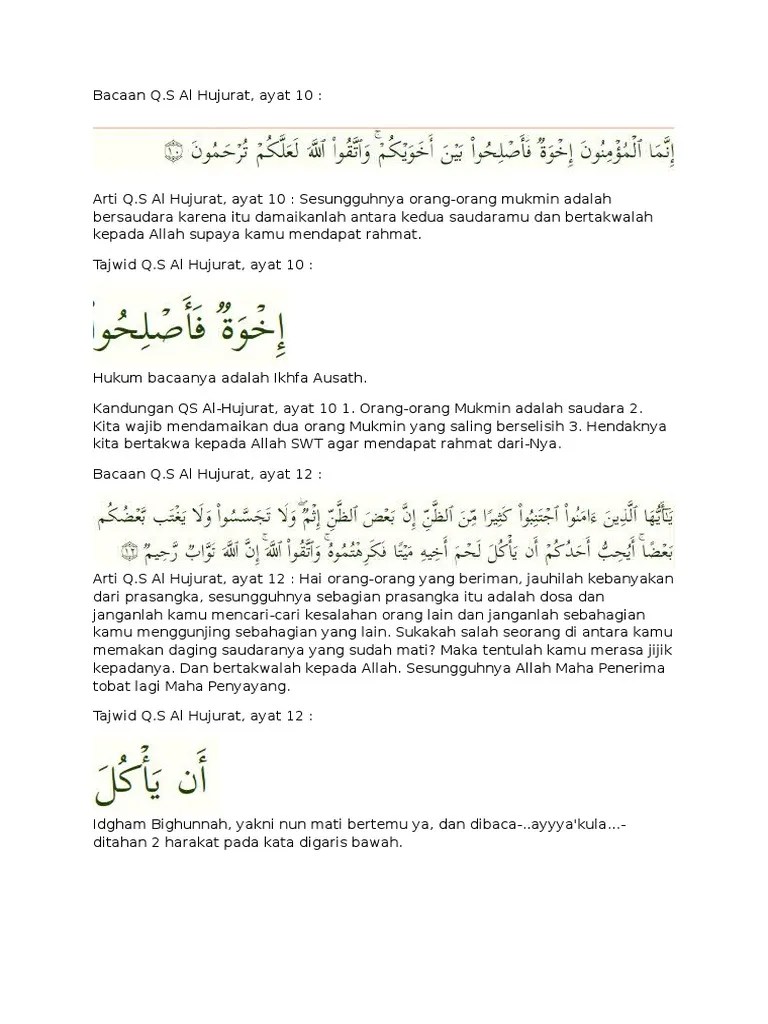 Bacaan Q.S Al Hujurat, ayat 10 :
إِنَّمَا ٱلْمُؤْمِنُونَ إِخْوَةٌ فَأَصْلِحُوا۟ بَيْنَ أَخَوَيْكُمْ ۚ وَٱتَّقُوا۟ ٱللَّهَ لَعَلَّكُمْ تُرْحَمُونَ ١٠
Arti Q.S Al Hujurat, ayat 10 : Sesungguhnya orang-orang mukmin adalah
bersaudara karena itu damaikanlah antara kedua saudaramu dan bertakwalah
kepada Allah supaya kamu mendapat rahmat.
Tajwid Q.S Al Hujurat, ayat 10 :
إِخْوَةٌ فَأَصْلِحُوا
Hukum bacaanya adalah Ikhfa Ausath.
Kandungan QS Al-Hujurat, ayat 10 1. Orang-orang Mukmin adalah saudara 2.
Kita wajib mendamaikan dua orang Mukmin yang saling berselisih 3. Hendaknya
kita bertakwa kepada Allah SWT agar mendapat rahmat dari-Nya.
Bacaan Q.S Al Hujurat, ayat 12 :
يَـٰٓأَيُّهَا ٱلَّذِينَ ءَامَنُوا۟ ٱجْتَنِبُوا۟ كَثِيرًا مِّنَ ٱلظَّنِّ إِنَّ بَعْضَ ٱلظَّنِّ إِثْمٌ ۖ وَلَا تَجَسَّسُوا۟ وَلَا يَغْتَب بَّعْضُكُم
بَعْضًا ۚ أَيُحِبُّ أَحَدُكُمْ أَن يَأْكُلَ لَحْمَ أَخِيهِ مَيْتًا فَكَرِهْتُمُوهُ ۚ وَٱتَّقُوا۟ ٱللَّهَ ۚ إِنَّ ٱللَّهَ تَوَّابٌ رَّحِيمٌ ١٢
Arti Q.S Al Hujurat, ayat 12 : Hai orang-orang yang beriman, jauhilah kebanyakan
dari prasangka, sesungguhnya sebagian prasangka itu adalah dosa dan
janganlah kamu mencari-cari kesalahan orang lain dan janganlah sebahagian
kamu menggunjing sebahagian yang lain. Sukakah salah seorang di antara kamu
memakan daging saudaranya yang sudah mati? Maka tentulah kamu merasa jijik
kepadanya. Dan bertakwalah kepada Allah. Sesungguhnya Allah Maha Penerima
tobat lagi Maha Penyayang.
Tajwid Q.S Al Hujurat, ayat 12 :
أَن يَأْكُلَ
Idgham Bighunnah, yakni nun mati bertemu ya, dan dibaca-..ayyya'kula...-
ditahan 2 harakat pada kata digaris bawah.